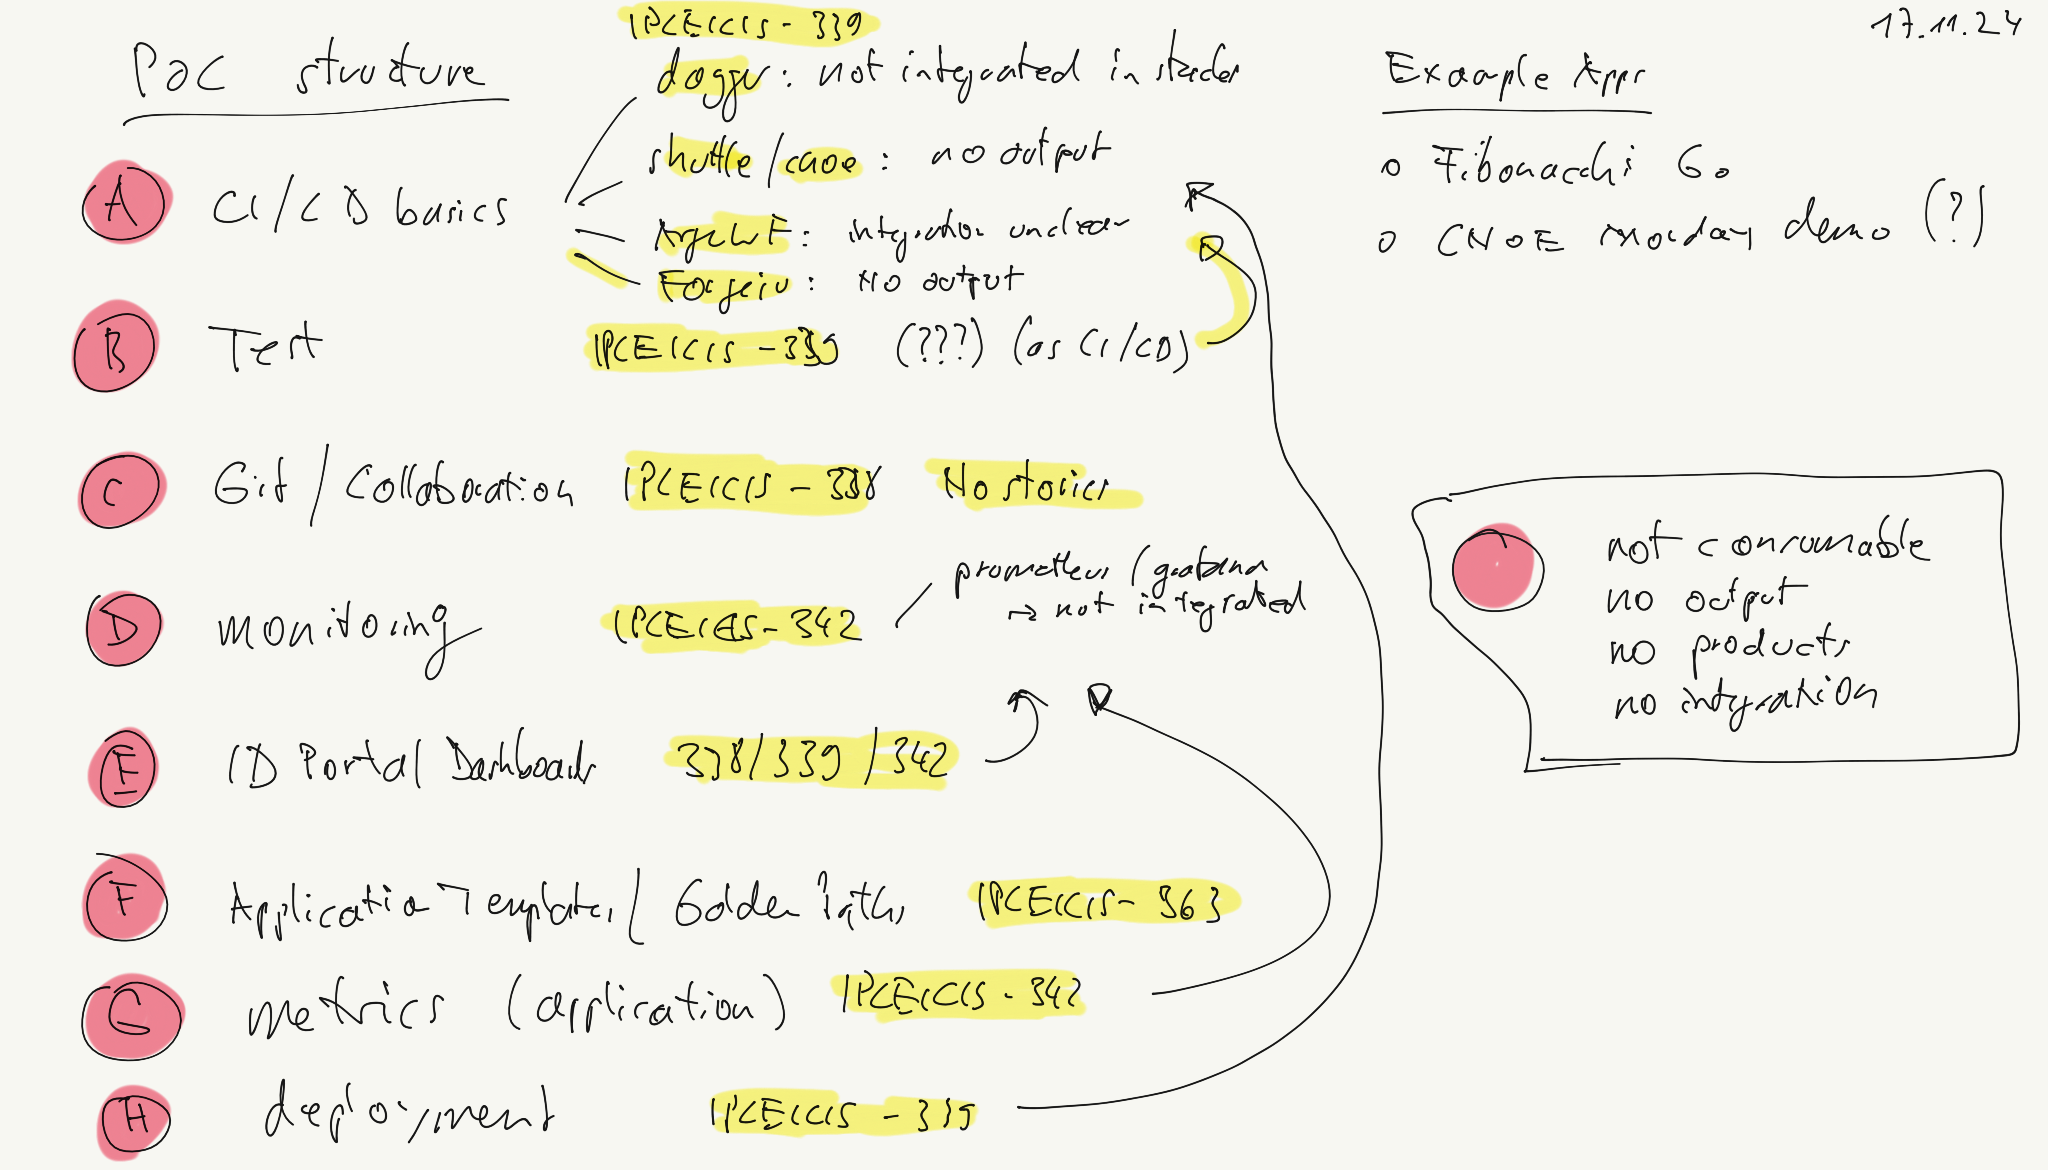 17.11.24
PoC structure
IPCEICIS - 339
dagger: not integrated in stacks
shuttle / cnoe: no output
Argo WF: integration unclear
Forgejo: No output
A CI/CD basics
B Test IPCEICIS - 339 (???) (as CI/CD)
C Git / Collaboration IPCEICIS - 338 No stories
D monitoring IPCEICIS - 342
prometheus / grafana
→ not integrated
E ID Portal Dashboards 338/339/342
F Application Templates / Golden Paths IPCEICIS - 363
G metrics (application) IPCEICIS - 342
H deployment IPCEICIS - 339
Example Apps
o Fibonacchi Go
o CNOE monday demo (?)
not consumable
no output
no products
no integration